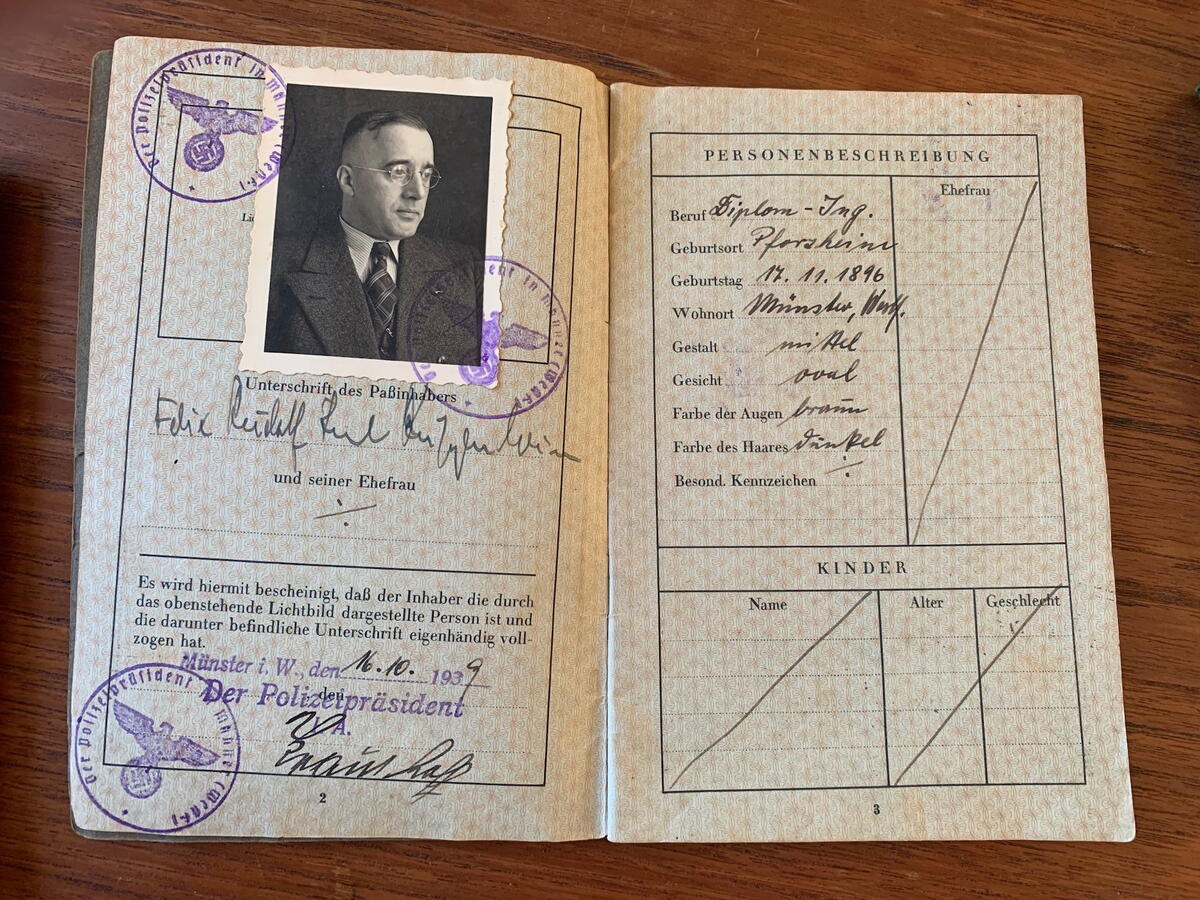 Der Polizeipräsident in Münster (Westf.)
Der Polizeipräsident in Münster (Westf.)
Unterschrift des Paßinhabers
Felix Rudolf
und seiner Ehefrau
Es wird hiermit bescheinigt, daß der Inhaber die durch
das obenstehende Lichtbild dargestellte Person ist und
die darunter befindliche Unterschrift eigenhändig voll-
zogen hat.
Münster i. W., den 16.10. 1939
den
Der Polizeipräsident
I. A.
Der Polizeipräsident in Münster (Westf.)
2
PERSONENBESCHREIBUNG
Ehefrau
Beruf Diplom-Ing.
Geburtsort Pforzheim
Geburtstag 17.11.1896
Wohnort Münster, Westf.
Gestalt mittel
Gesicht oval
Farbe der Augen braun
Farbe des Haares dunkel
Besond. Kennzeichen
KINDER
Name Alter Geschlecht
3